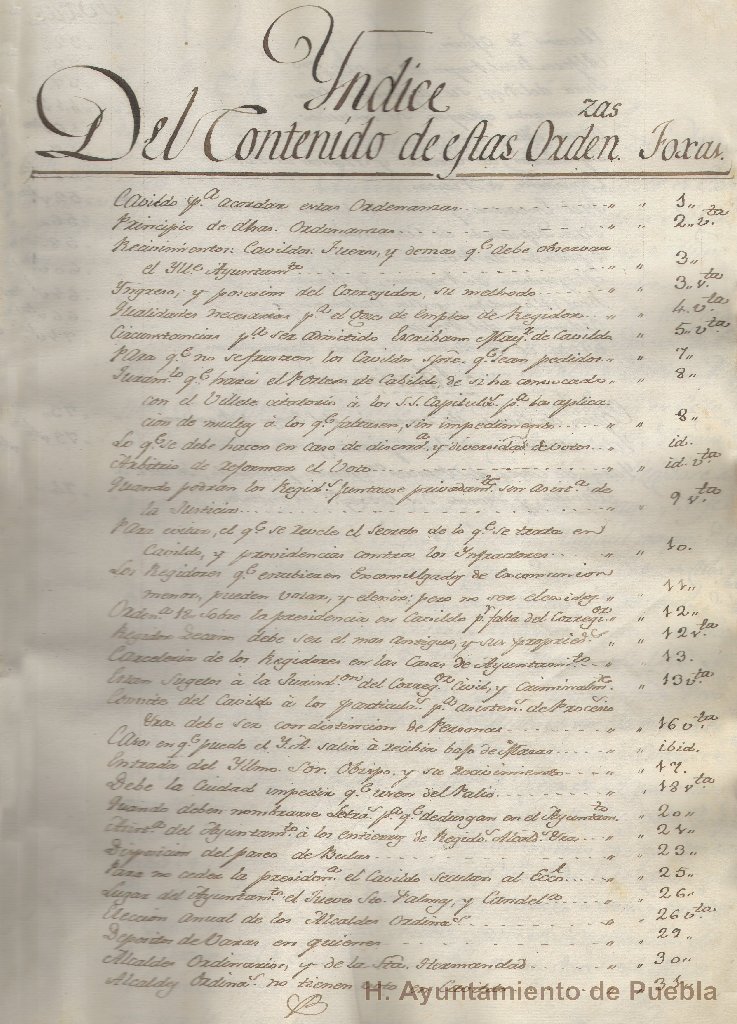 Yndice
Del Contenido de estas Orden.zas Foxas.
Cavildo p.a acordar estas Ordenanzas 1,,
Principio de dhas. Ordenanzas 2,, v.ta
Recivimientos, Cavildos, y demas q.e debe observar
el Yll.e Ayuntam.to 3,,
Yngreso, y posesion del Corregidor, su methodo 3,, v.ta
Qualidades necesarias p.a el Goze de Empleo de Regidor 4. v.ta
Circunstancias p.a ser admitido Escribano May.r de Cavildo 5,, v.ta
Para q.e no se junten los Cavildos q.e sean pedidos 7,,
Juram.to q.e hará el Portero de Cabildo, de si ha convocado
con el Villete citatorio à los S.S. Capitul.s p.a la aplica-
cion de multa à los q.e faltasen, sin impedimento 8,,
Lo q.e se debe hacer en caso de discord.a y diversidad de votos id.
Arbitrio de reformar el Voto id. v.ta
Quando podrán los Regid.s juntarse privadam.te sin asist.a de
la Justicia 9 v.ta
Para evitar, el q.e se revele el Secreto de lo q.e se trata en
Cavildo, y providencias contra los Ynfractores 10.
Los Regidores q.e estubieren Encomulgados de Excomunion
menor, pueden votar, y elexir; pero no ser elexidos 11,,
Orden.a 12 sobre la presidencia en Cavildo p.r falta del Correg.or 12,,
Regidor Decano debe ser el mas antiguo, y sus propried.s 12 v.ta
Carceleria de los Regidores en las Casas de Ayuntam.to 13.
Estan sugetos à la Jurisd.on del Correg.or Civil, y Criminalm.te 13 v.ta
Convite del Cavildo à los particul.s p.a asistem.s de Funcion
&ra. debe ser con distincion de Personas 16 v.ta
Casos en q.e puede el Y. A. salir à recibir bajo de Mazas ibid.
Entrada del Yllmo. Sor. Obispo, y su recivimiento 17.
Debe la Ciudad impedir q.e usen del Palio 18 v.ta
Quando deben nombrarse Letra.s p.a q.e dedusgan en el Ayuntam.to 20,,
Asist.a del Ayuntam.to à los entierros de Regid.s Alcald.s &ra. 21,,
Disposicion del paseo de Bulas 23,,
Para no ceder la presiden.a el Cavildo secular al Ecc.o 25,,
Lugar del Ayuntam.to el Jueves Sto. Palmas, y Candel.a 26,,
Eleccion anual de los Alcaldes Ordina.s 26 v.ta
Depositos de Varas en quienes 29,,
Alcaldes Ordinarios, y de la Sta. Hermandad 30,,
Alcaldes Ordina.s no tienen voto en Cavildo
H. Ayuntamiento de Puebla